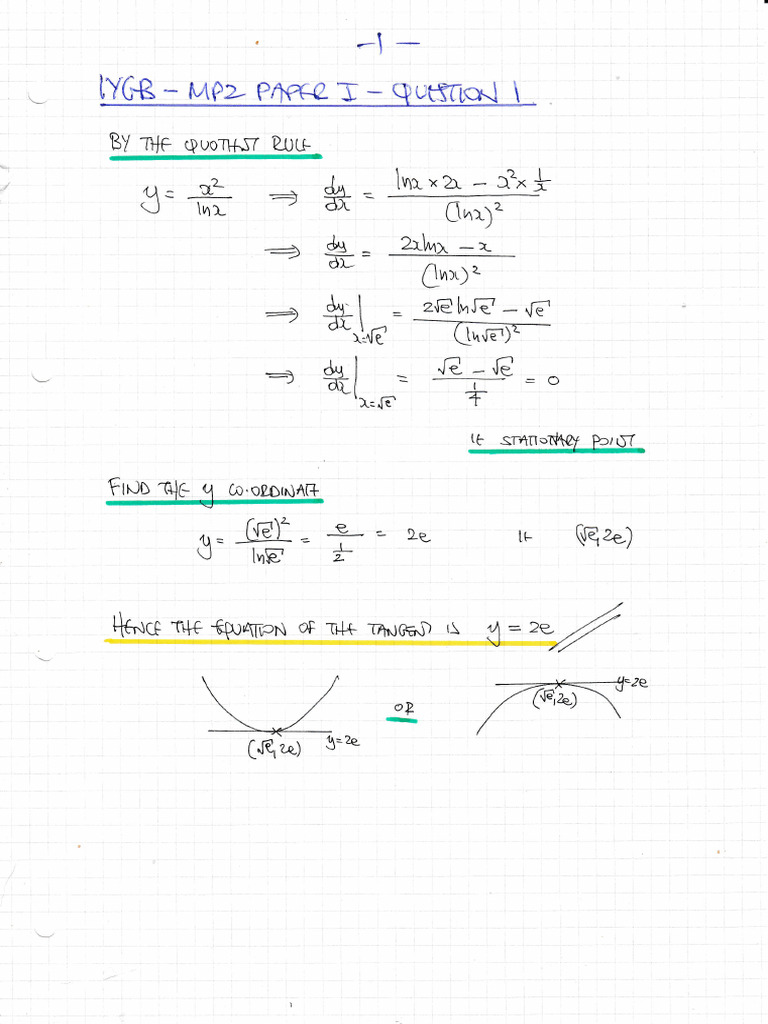 -1-
IYGB - MP2 PAPER I - QUESTION 1
BY THE QUOTIENT RULE
y = x²/lnx ⟹ dy/dx = (lnx × 2x - x² × 1/x)/(lnx)²
⟹ dy/dx = (2xlnx - x)/(lnx)²
⟹ dy/dx|x=√e = (2√e ln√e - √e)/(ln√e)²
⟹ dy/dx|x=√e = (√e - √e)/(1/4) = 0
IE STATIONARY POINT
FIND THE y CO-ORDINATE
y = (√e)²/ln√e = e/(1/2) = 2e IE (√e, 2e)
HENCE THE EQUATION OF THE TANGENT IS y = 2e
(√e, 2e) y=2e
OR
y=2e
(√e, 2e)